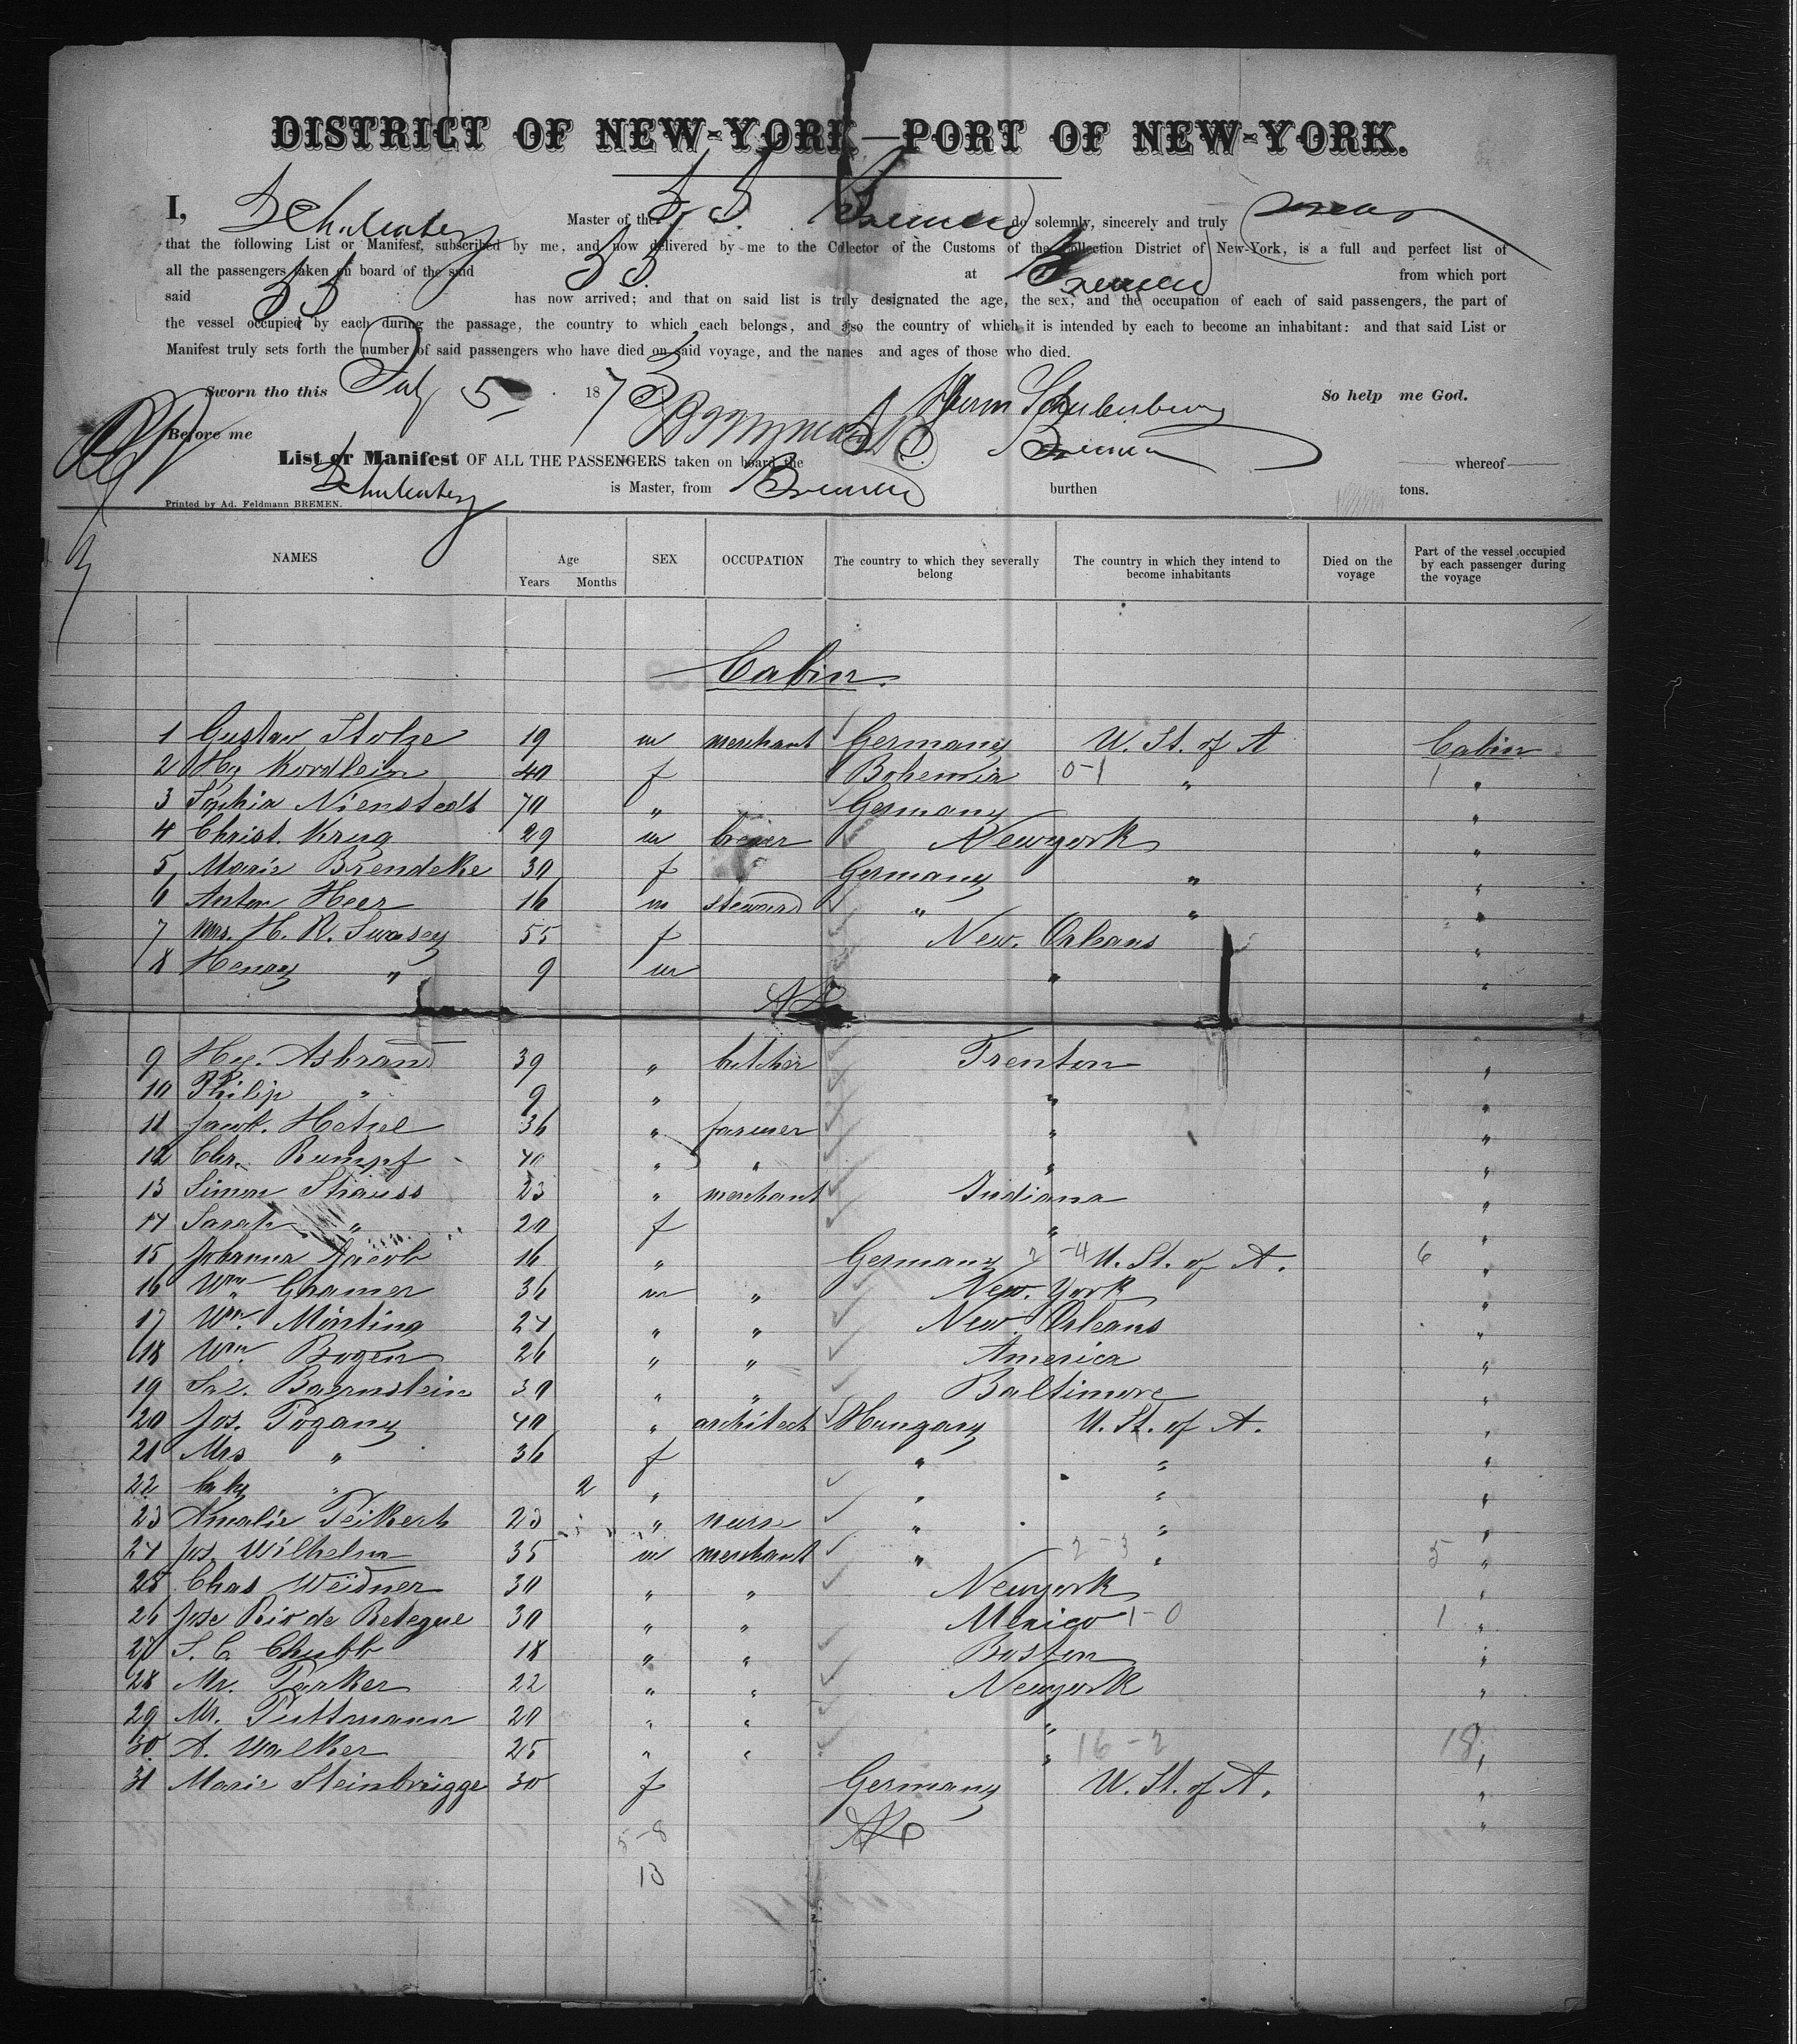 DISTRICT OF NEW-YORK—PORT OF NEW-YORK.
I, Schulenberg Master of the S. S. Bremen do solemnly, sincerely and truly swear
that the following List or Manifest, subscribed by me, and now delivered by me to the Colector of the Customs of the Collection District of New-York, is a full and perfect list of
all the passengers taken on board of the said S S. at Bremen from which port
said S S has now arrived; and that on said list is truly designated the age, the sex, and the occupation of each of said passengers, the part of
the vessel occupied by each during the passage, the country to which each belongs, and also the country of which it is intended by each to become an inhabitant: and that said List or
Manifest truly sets forth the number of said passengers who have died on said voyage, and the names and ages of those who died.
Sworn tho this July 5 1873 Herm Schulenburg So help me God.
Before me
List or Manifest OF ALL THE PASSENGERS taken on board the S S Bremen whereof
Schulenberg is Master, from Bremen burthen tons.
Printed by Ad. Feldmann BREMEN.
NAMES Age Years Months SEX OCCUPATION The country to which they severally belong The country in which they intend to become inhabitants Died on the voyage Part of the vessel occupied by each passenger during the voyage
Cabin.
1 Gustav Stolze 19 m merchant Germany U. St. of A Cabin
2 Hy Kordlein 40 f Bohemia 0-1 " 1 "
3 Sophia Nienstedt 70 " Germany "
4 Christ. Krug 29 m brewer Newyork "
5 Marie Brendeke 30 f Germany " "
6 Anton Heer 16 m steward " " "
7 Mrs. H. R. Swasey 55 f New. Orleans "
8 Henry " 9 m " "
9 Hy. Asbrand 39 " butcher Trenton "
10 Philip " 9 " " "
11 Jacob. Hetzel 36 " farmer " "
12 Chr. Rumpf 40 " " " "
13 Simon Strauss 23 " merchant Indiana "
14 Sarah " 20 f " "
15 Johanna Jacob 16 " Germany 2 -4 U. St. of A. 6 "
16 Wm Gramer 36 m " New. York "
17 Wm. Minting 24 " " New Orleans "
18 Wm. Bogen 26 " " America "
19 Baernstein 30 " " Baltimore "
20 Jos. Pogany 40 " architect Hungary U. St. of A. "
21 Mrs " 36 f " " "
22 baby " 2 " " " "
23 Amalie Peikert 23 " nurse " " "
24 Jos Wilhelm 35 m merchant " 2-3 " 5 "
25 Chas Weidner 30 " " Newyork "
26 Jose Rio de Retegue 30 " " Mexico 1-0 1 "
27 S. C. Chubb 18 " " Boston "
28 Mr. Parker 22 " " Newyork "
29 Mr. Puttmann 20 " " "
30 A. Walker 25 " " " 16-2 18 "
31 Marie Steinbrügge 30 f Germany U. St. of A. "
5-8
13